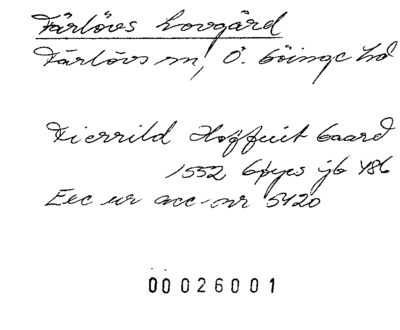 Färlövs hovgård
Färlövs sn, Ö. Göinge hd
Fierrild Hoffuit Gaard
1552 Gøyes jb 486
Exc ur acc-nr 5420
00026001